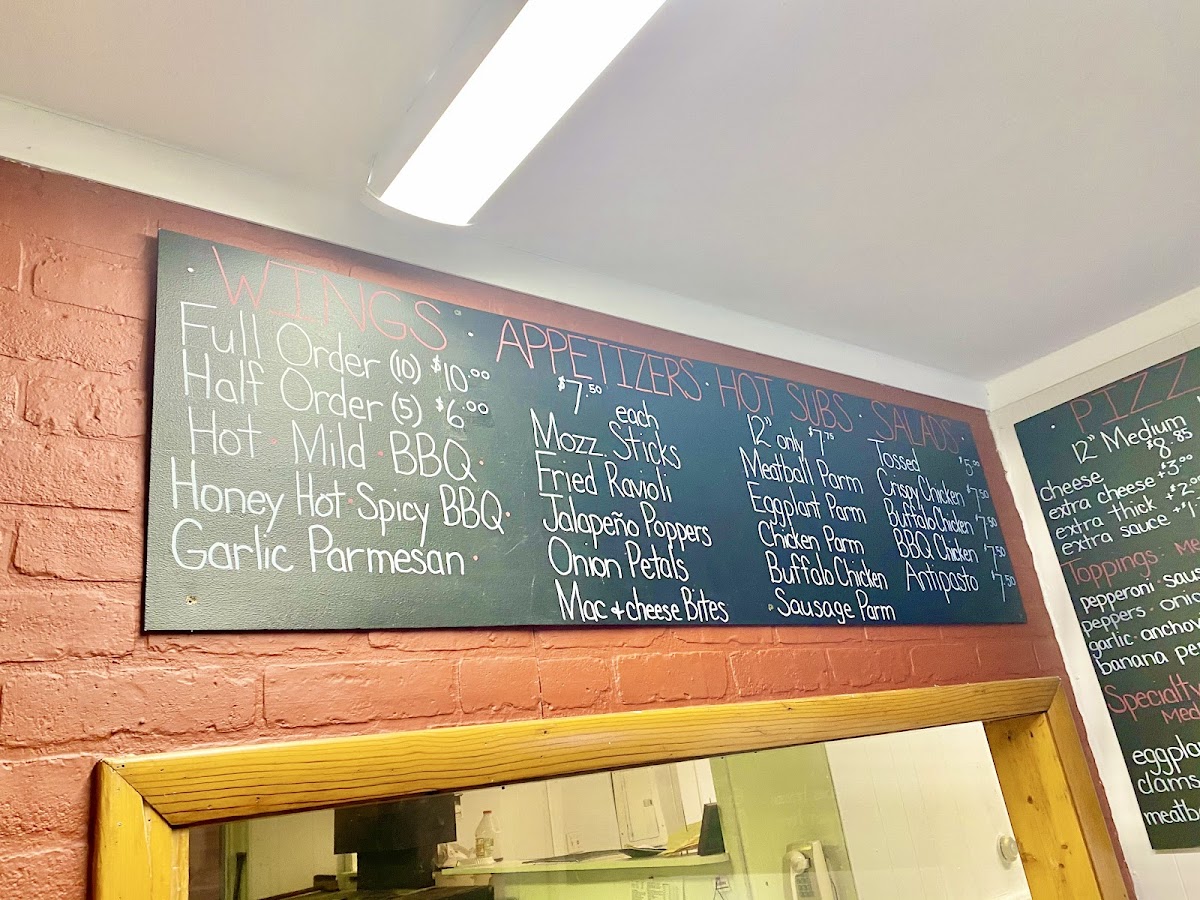 WINGS
Full Order (10) $10.00
Half Order (5) $6.00
Hot · Mild · BBQ ·
Honey Hot · Spicy BBQ ·
Garlic Parmesan ·
· APPETIZERS ·
$7.50 each
Mozz. Sticks
Fried Ravioli
Jalapeño Poppers
Onion Petals
Mac + cheese Bites
HOT SUBS ·
12" only $7.75
Meatball Parm
Eggplant Parm
Chicken Parm
Buffalo Chicken
· Sausage Parm
SALADS ·
Tossed $5.00
Crispy Chicken $7.50
Buffalo Chicken $7.50
BBQ Chicken $7.50
Antipasto $7.50
· PIZZ
12" Medium
$8.85
cheese
extra cheese + $3.00
extra thick
extra sauce
Toppings ·
pepperoni ·
peppers ·
garlic ·
banana
Specialty